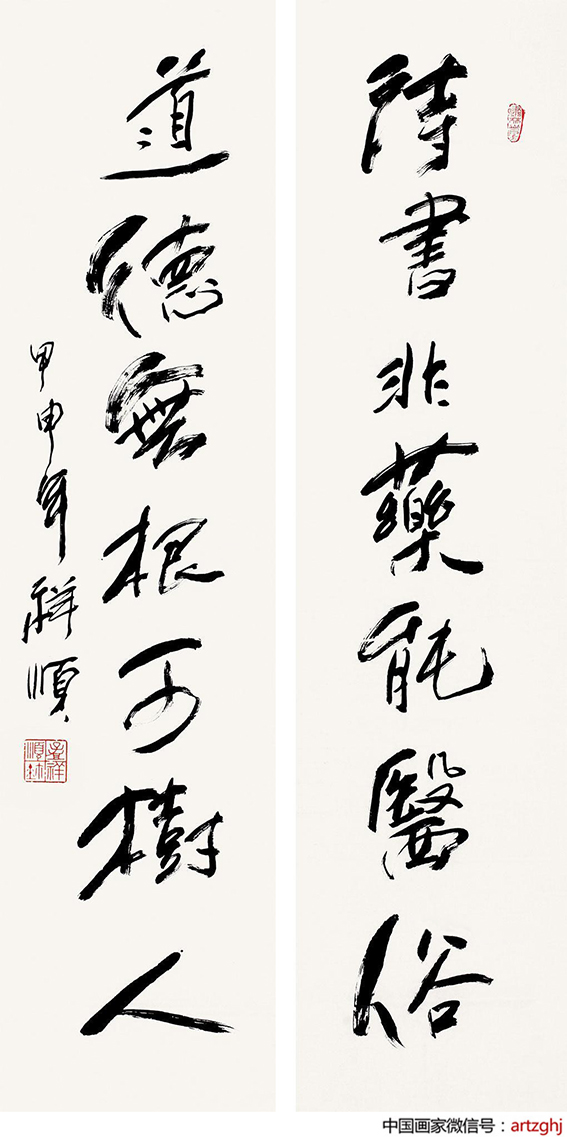 詩書非藥能醫俗
道德無根可樹人
甲申年祥順
中国画家微信号：artzghj